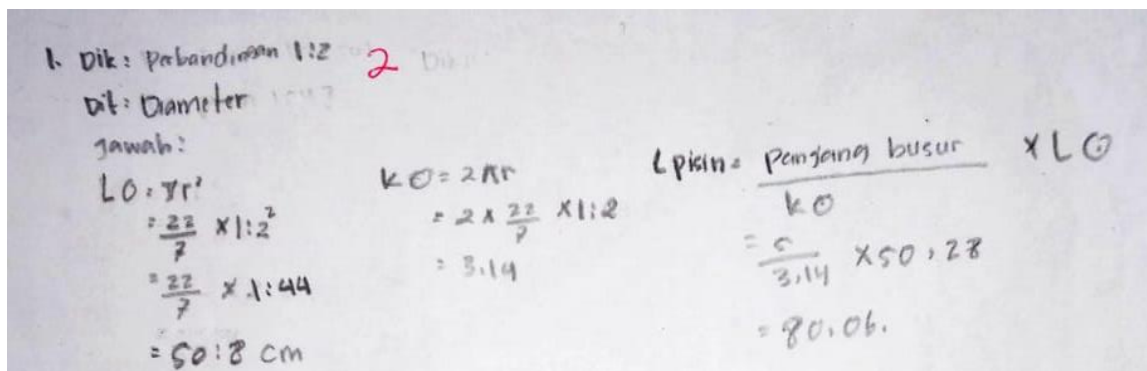 1. Dik: Perbandingan 1:2
2
Dit: Diameter
Jawab:
L⊙ = πr²
= 22/7 × 1:2²
= 22/7 × 1:44
= 50:8 cm
K⊙ = 2πr
= 2 × 22/7 × 1:2
= 3,14
L pisin = Panjang busur / k⊙ × L⊙
= 5/3,14 × 50,28
= 80,06.